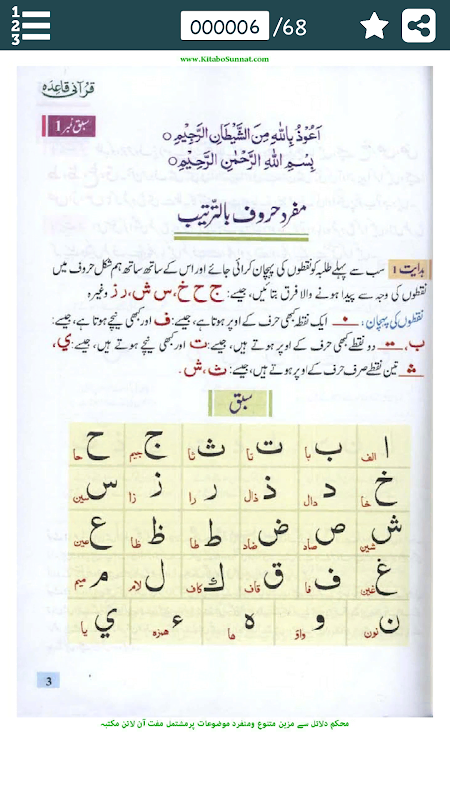 1
2
3
000006 /68
www.KitaboSunnat.com
قرآنی قاعدہ
سبق نمبر 1
اَعُوْذُ بِاللّٰهِ مِنَ الشَّيْطَانِ الرَّجِيْمِ ○
بِسْمِ اللّٰهِ الرَّحْمٰنِ الرَّحِيْمِ ○
مفرد حروف بالترتیب
ہدایت 1 سب سے پہلے طلبہ کو نقطوں کی پہچان کرائی جائے اور اس کے ساتھ ساتھ ہم شکل حروف میں
نقطوں کی وجہ سے پیدا ہونے والا فرق بتائیں، جیسے: ج ح خ، س ش، ر ز وغیرہ
نقطوں کی پہچان: ایک نقطہ کبھی حرف کے اوپر ہوتا ہے، جیسے: ف اور کبھی نیچے ہوتا ہے، جیسے:
ب، دو نقطے کبھی حرف کے اوپر ہوتے ہیں، جیسے: ت اور کبھی نیچے ہوتے ہیں، جیسے: ي،
تین نقطے صرف حرف کے اوپر ہوتے ہیں، جیسے: ث، ش .
سبق
ا الف ب با ت تا ث ثا ج جیم ح حا
خ خا د دال ذ ذال ر را ز زا س سین
ش شین ص صاد ض ضاد ط طا ظ ظا ع عین
غ غین ف فا ق قاف ك کاف ل لام م میم
ن نون و واؤ ه ها ء همزه ي یا
3
محکم دلائل سے مزین متنوع ومنفرد موضوعات پرمشتمل مفت آن لائن مکتبہ